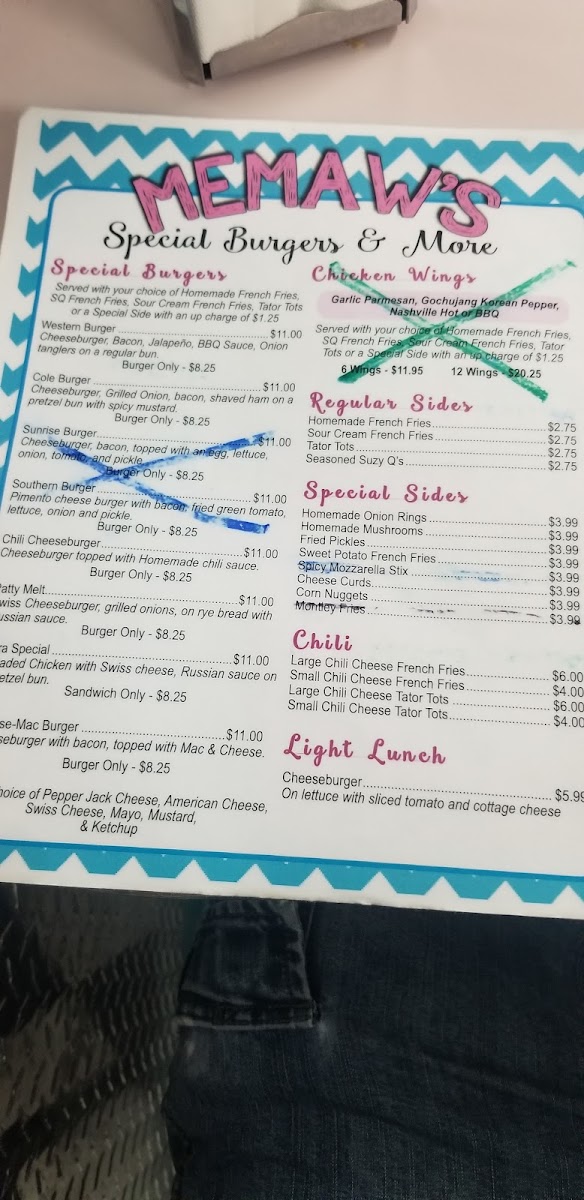 MEMAW'S
Special Burgers & More
Special Burgers
Served with your choice of Homemade French Fries,
SQ French Fries, Sour Cream French Fries, Tator Tots
or a Special Side with an up charge of $1.25
Western Burger $11.00
Cheeseburger, Bacon, Jalapeño, BBQ Sauce, Onion
tanglers on a regular bun.
Burger Only - $8.25
Cole Burger $11.00
Cheeseburger, Grilled Onion, bacon, shaved ham on a
pretzel bun with spicy mustard.
Burger Only - $8.25
Sunrise Burger $11.00
Cheeseburger, bacon, topped with an egg, lettuce,
onion, tomato, and pickle
Burger Only - $8.25
Southern Burger $11.00
Pimento cheese burger with bacon, fried green tomato,
lettuce, onion and pickle.
Burger Only - $8.25
Chili Cheeseburger $11.00
Cheeseburger topped with Homemade chili sauce.
Burger Only - $8.25
atty Melt $11.00
wiss Cheeseburger, grilled onions, on rye bread with
ussian sauce.
Burger Only - $8.25
a Special $11.00
aded Chicken with Swiss cheese, Russian sauce on
etzel bun.
Sandwich Only - $8.25
se-Mac Burger $11.00
seburger with bacon, topped with Mac & Cheese.
Burger Only - $8.25
hoice of Pepper Jack Cheese, American Cheese,
Swiss Cheese, Mayo, Mustard,
& Ketchup
Chicken Wings
Garlic Parmesan, Gochujang Korean Pepper,
Nashville Hot or BBQ
Served with your choice of Homemade French Fries,
SQ French Fries, Sour Cream French Fries, Tator
Tots or a Special Side with an up charge of $1.25
6 Wings - $11.95 12 Wings - $20.25
Regular Sides
Homemade French Fries $2.75
Sour Cream French Fries $2.75
Tator Tots $2.75
Seasoned Suzy Q's $2.75
Special Sides
Homemade Onion Rings $3.99
Homemade Mushrooms $3.99
Fried Pickles $3.99
Sweet Potato French Fries $3.99
Spicy Mozzarella Stix $3.99
Cheese Curds $3.99
Corn Nuggets $3.99
Fries $3.99
Chili
Large Chili Cheese French Fries $6.00
Small Chili Cheese French Fries $4.00
Large Chili Cheese Tator Tots $6.00
Small Chili Cheese Tator Tots $4.00
Light Lunch
Cheeseburger $5.99
On lettuce with sliced tomato and cottage cheese